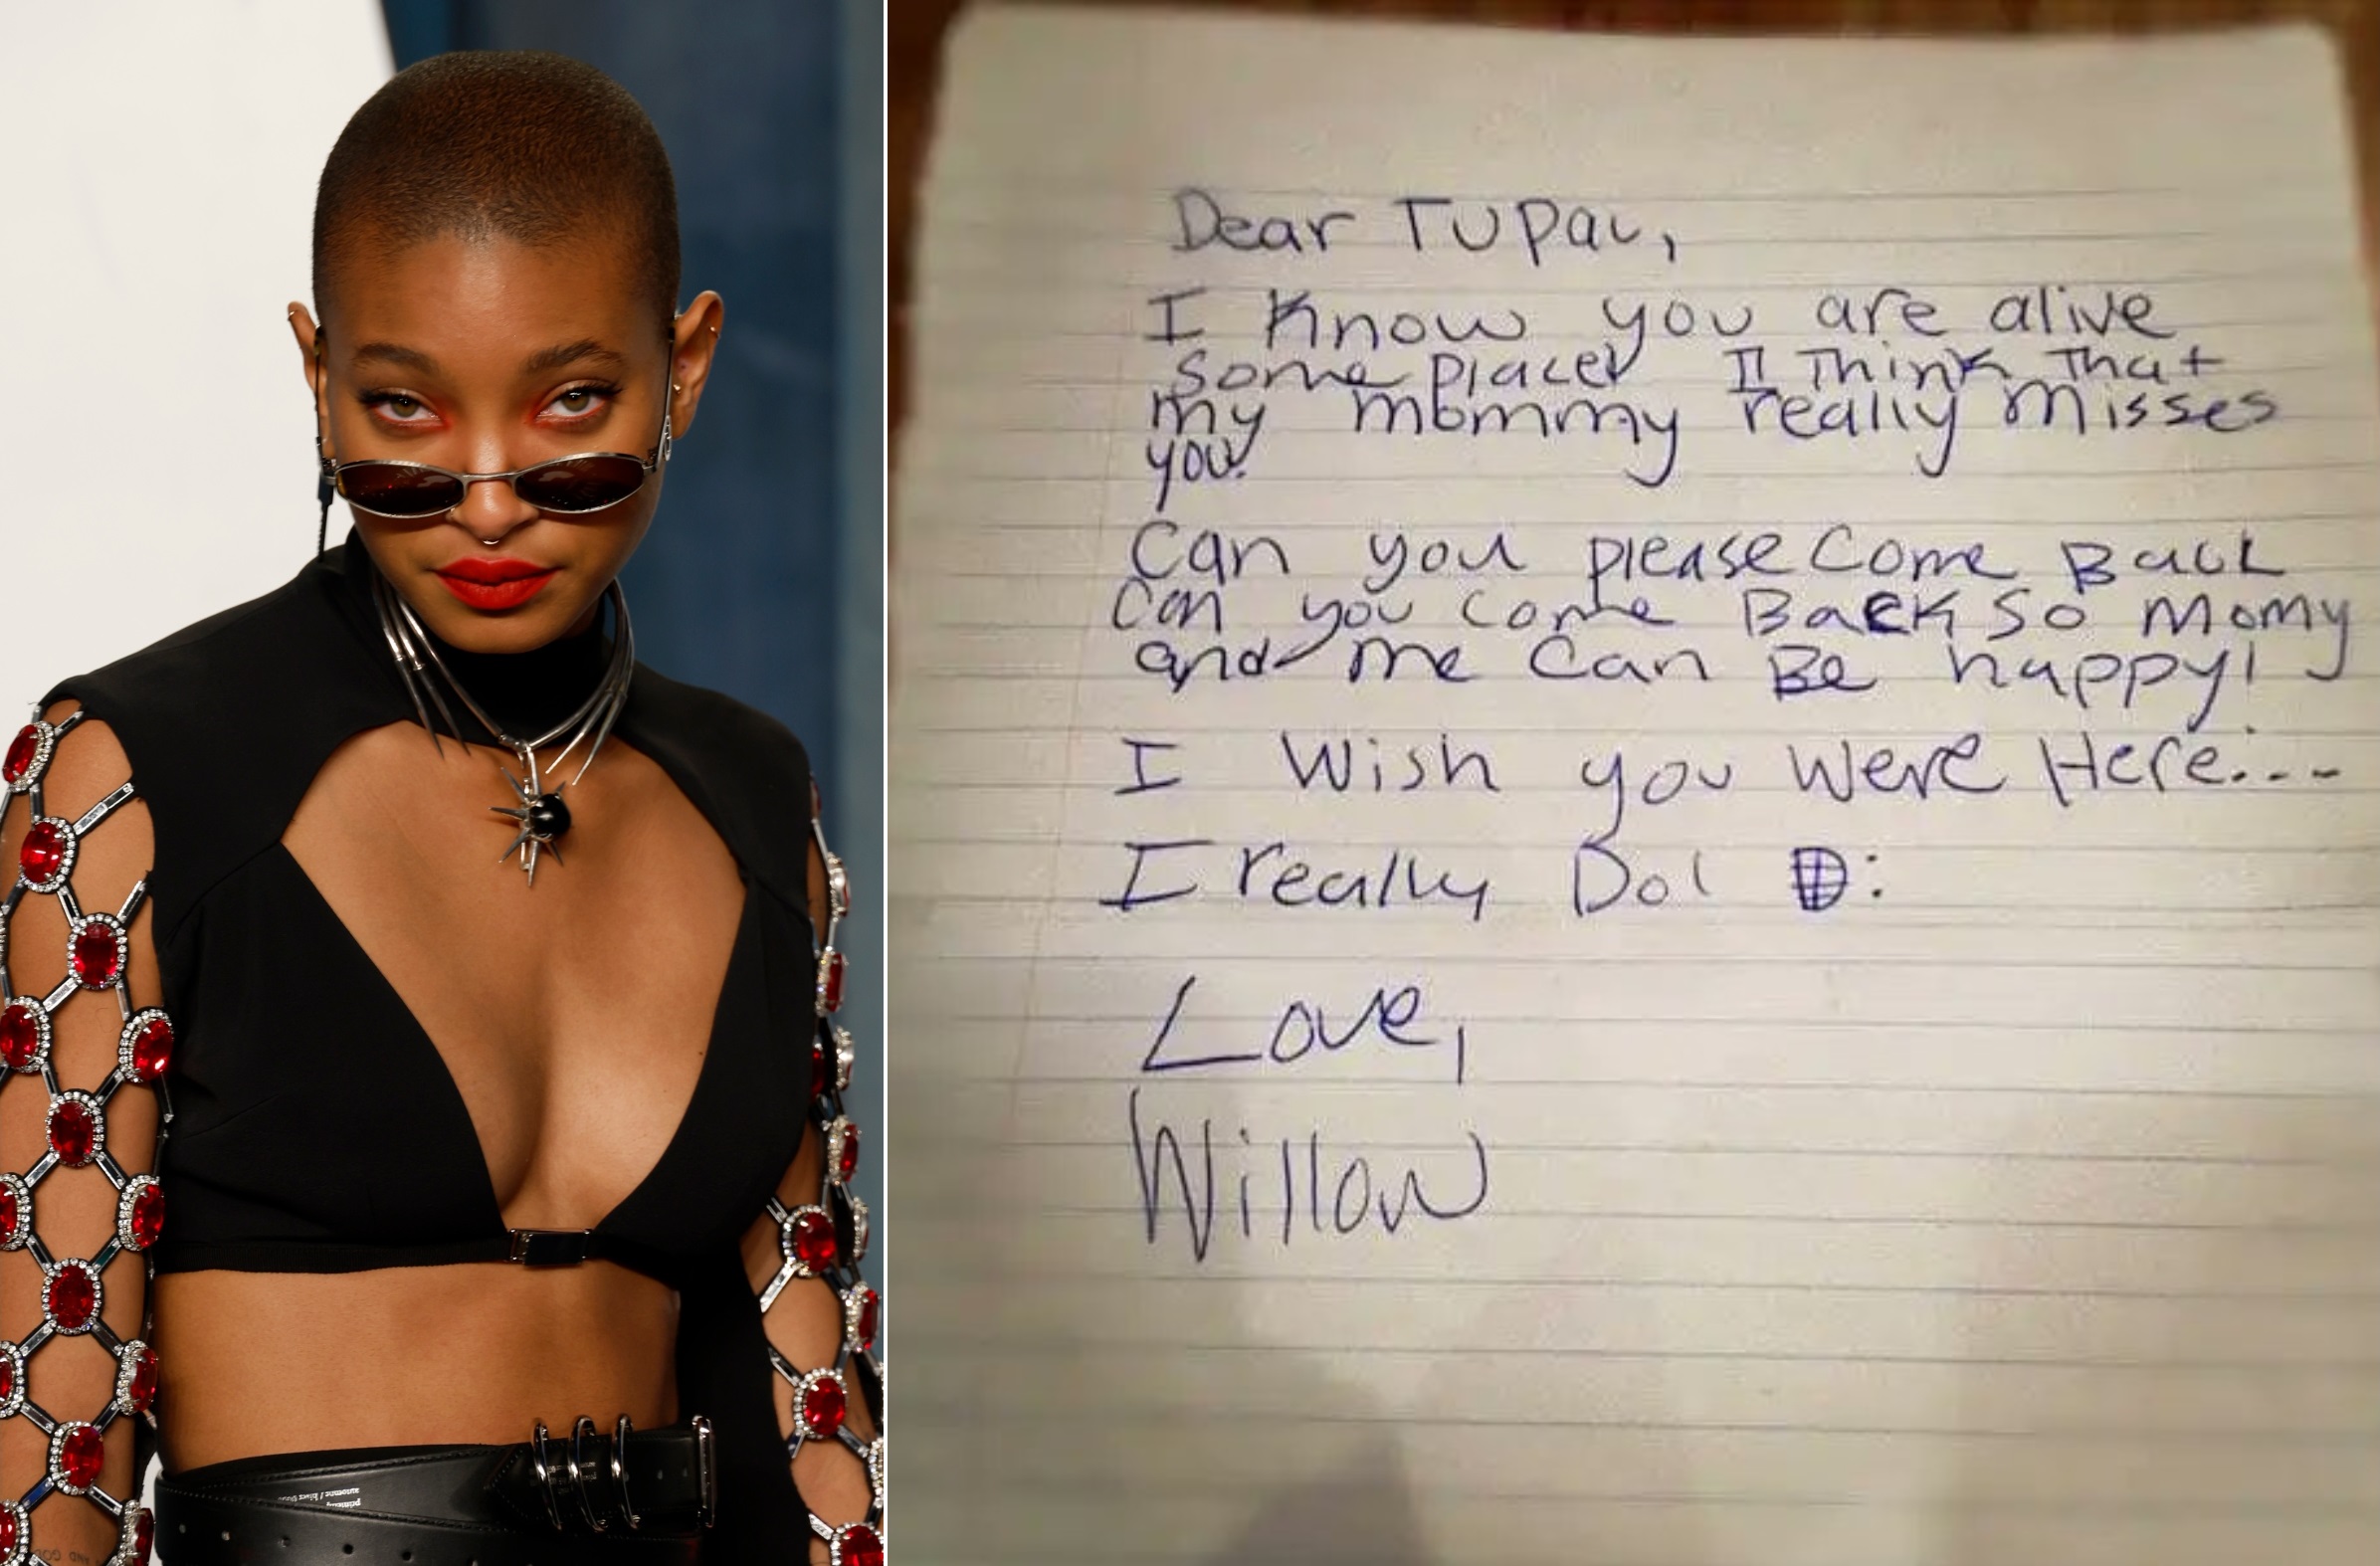 Dear Tupac,
I Know you are alive
some place I Think That
my mommy really misses
you.
Can you please Come Back
Can you Come Back So Momy
and me Can Be happy!
I Wish you Were Here....
I really Do!
Love,
Willow